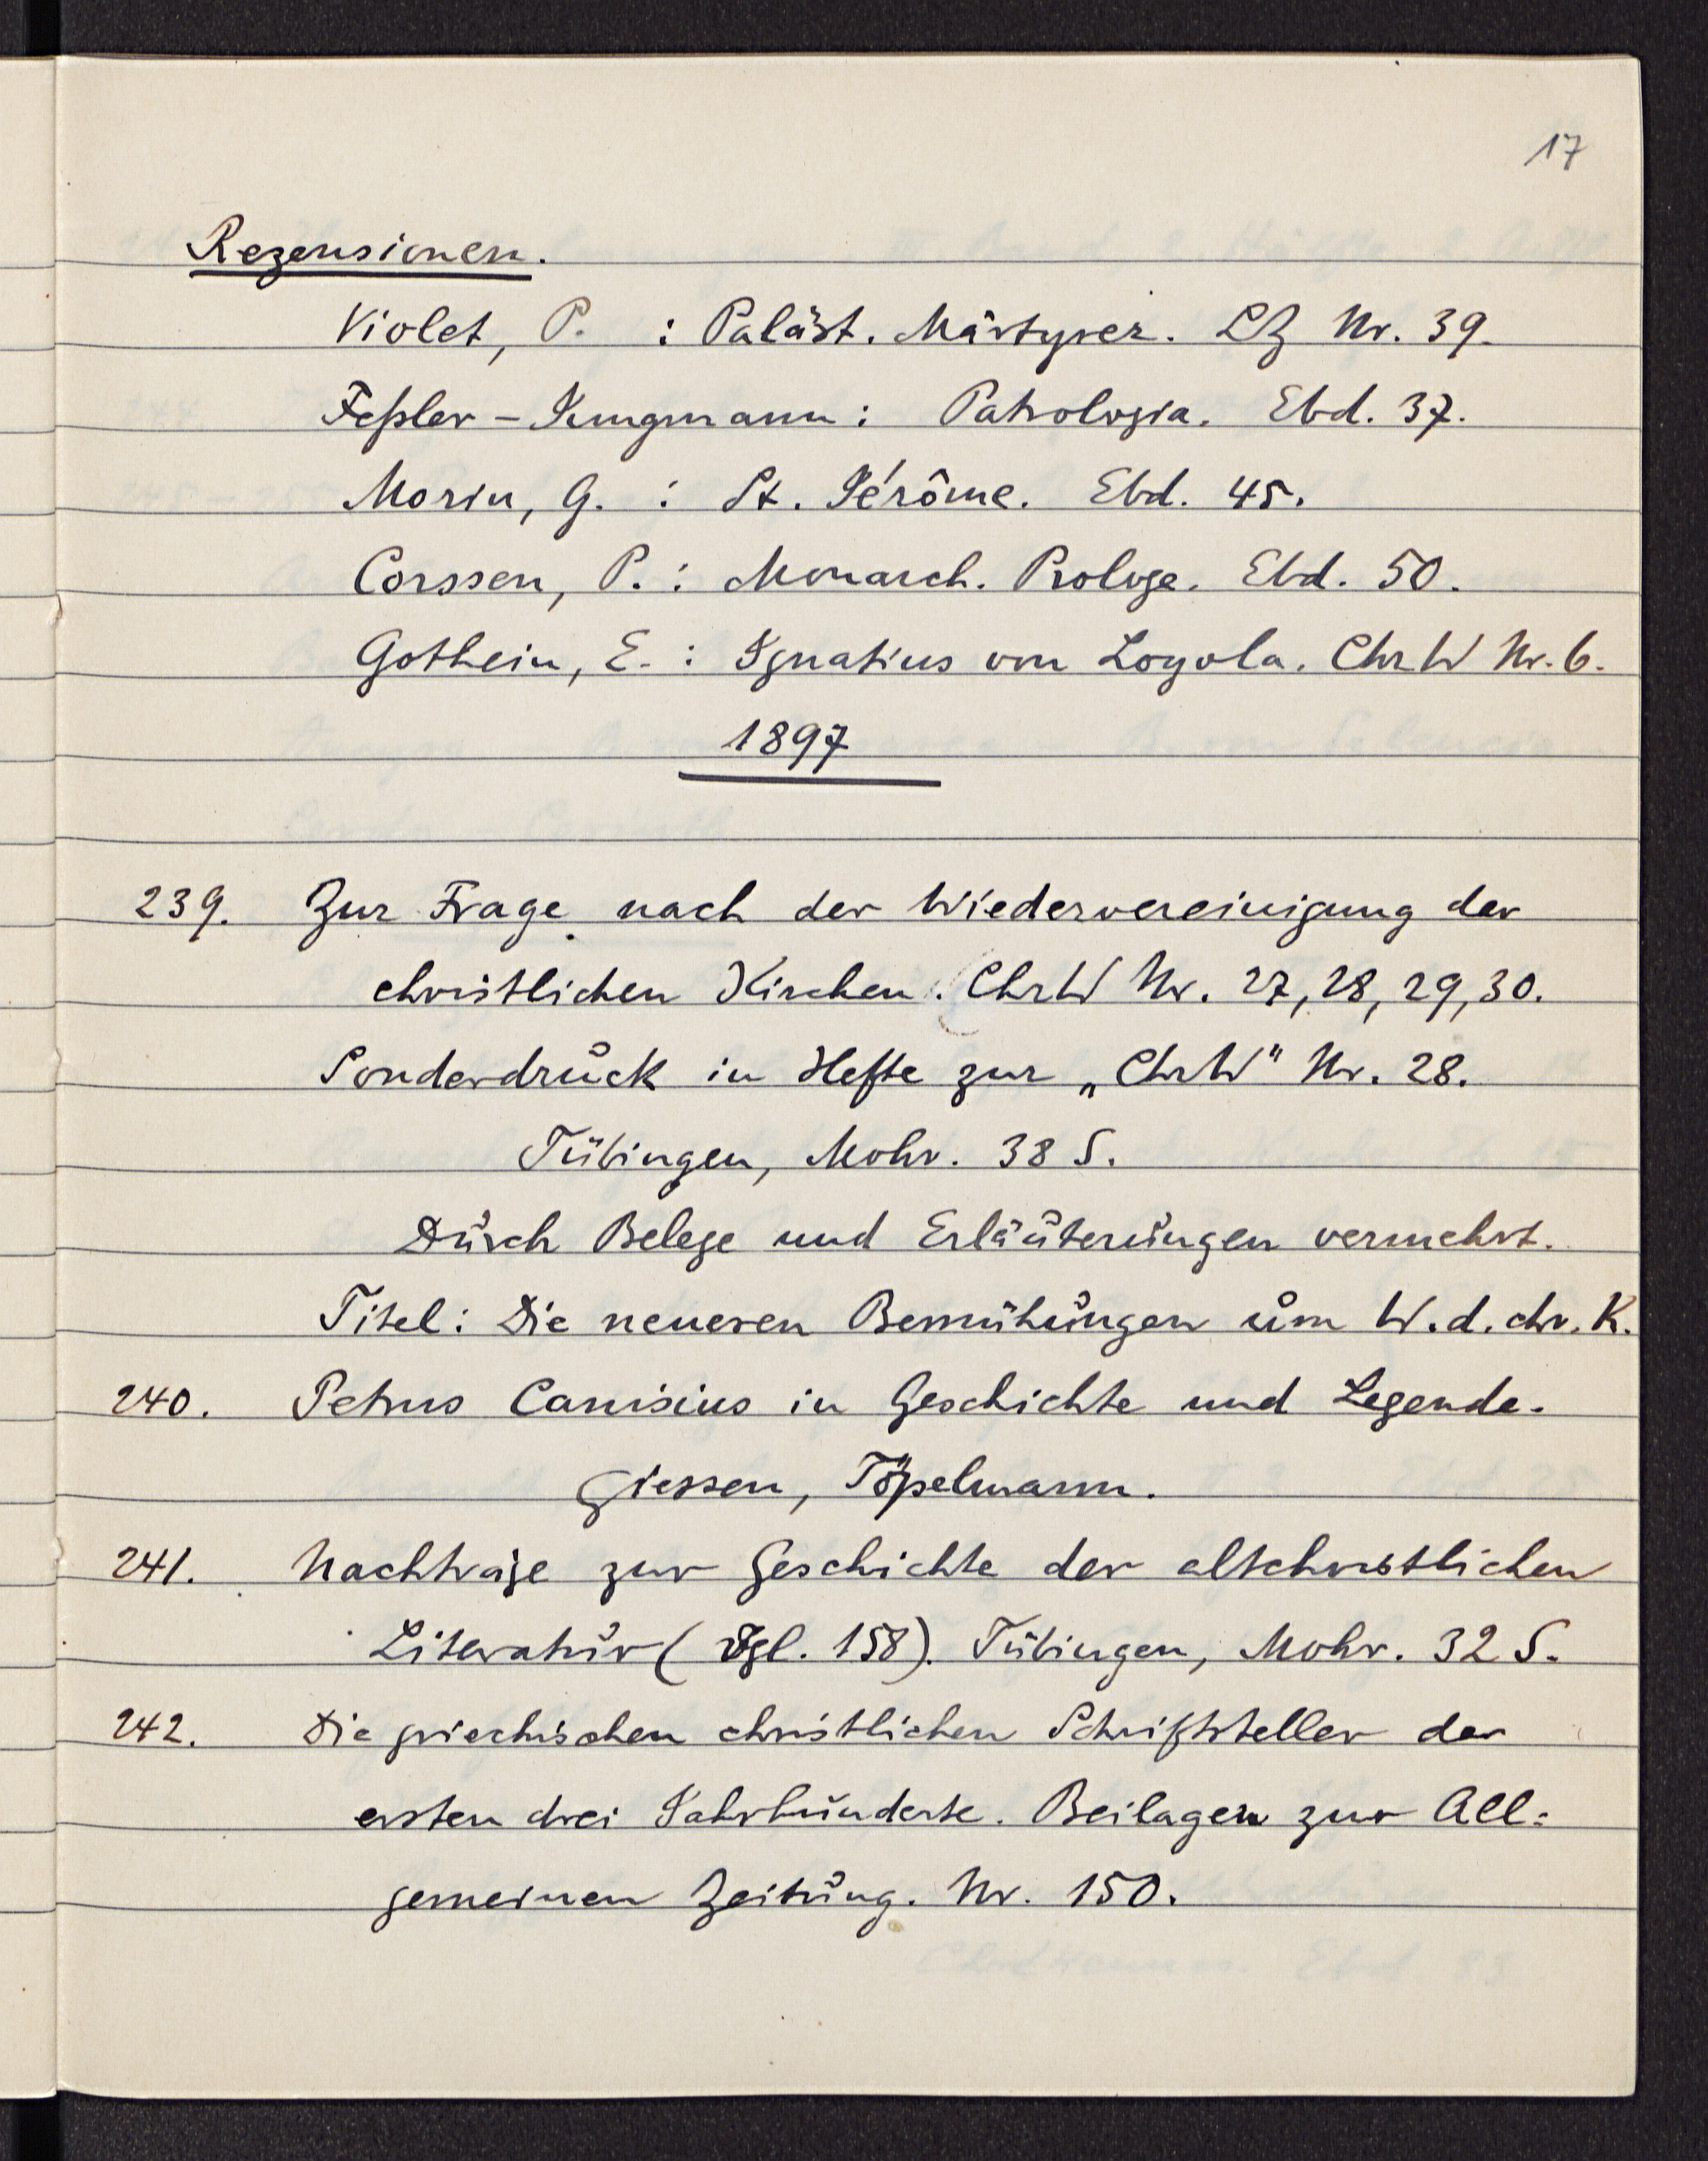 17
Rezensionen.
Violet, P. : Paläst. Märtyrer. LZ Nr. 39.
Feßler-Jungmann: Patrologia. Ebd. 37.
Morin, G. : St. Jérôme. Ebd. 45.
Corssen, P. : Monarch. Prologe. Ebd. 50.
Gothein, E. : Ignatius von Loyola. ChrW Nr. 6.
1897
239. Zur Frage nach der Wiedervereinigung der
christlichen Kirchen. ChrW Nr. 27, 28, 29, 30.
Sonderdruck in Hefte zur „ChrW" Nr. 28.
Tübingen, Mohr. 38 S.
Durch Belege und Erläuterungen vermehrt.
Titel: Die neueren Bemühungen um W. d. chr. K.
240. Petrus Canisius in Geschichte und Legende.
Giessen, Töpelmann.
241. Nachträge zur Geschichte der altchristlichen
Literatur (Vgl. 158). Tübingen, Mohr. 32 S.
242. Die griechischen christlichen Schriftsteller der
ersten drei Jahrhunderte. Beilagen zur All=
gemeinen Zeitung. Nr. 150.